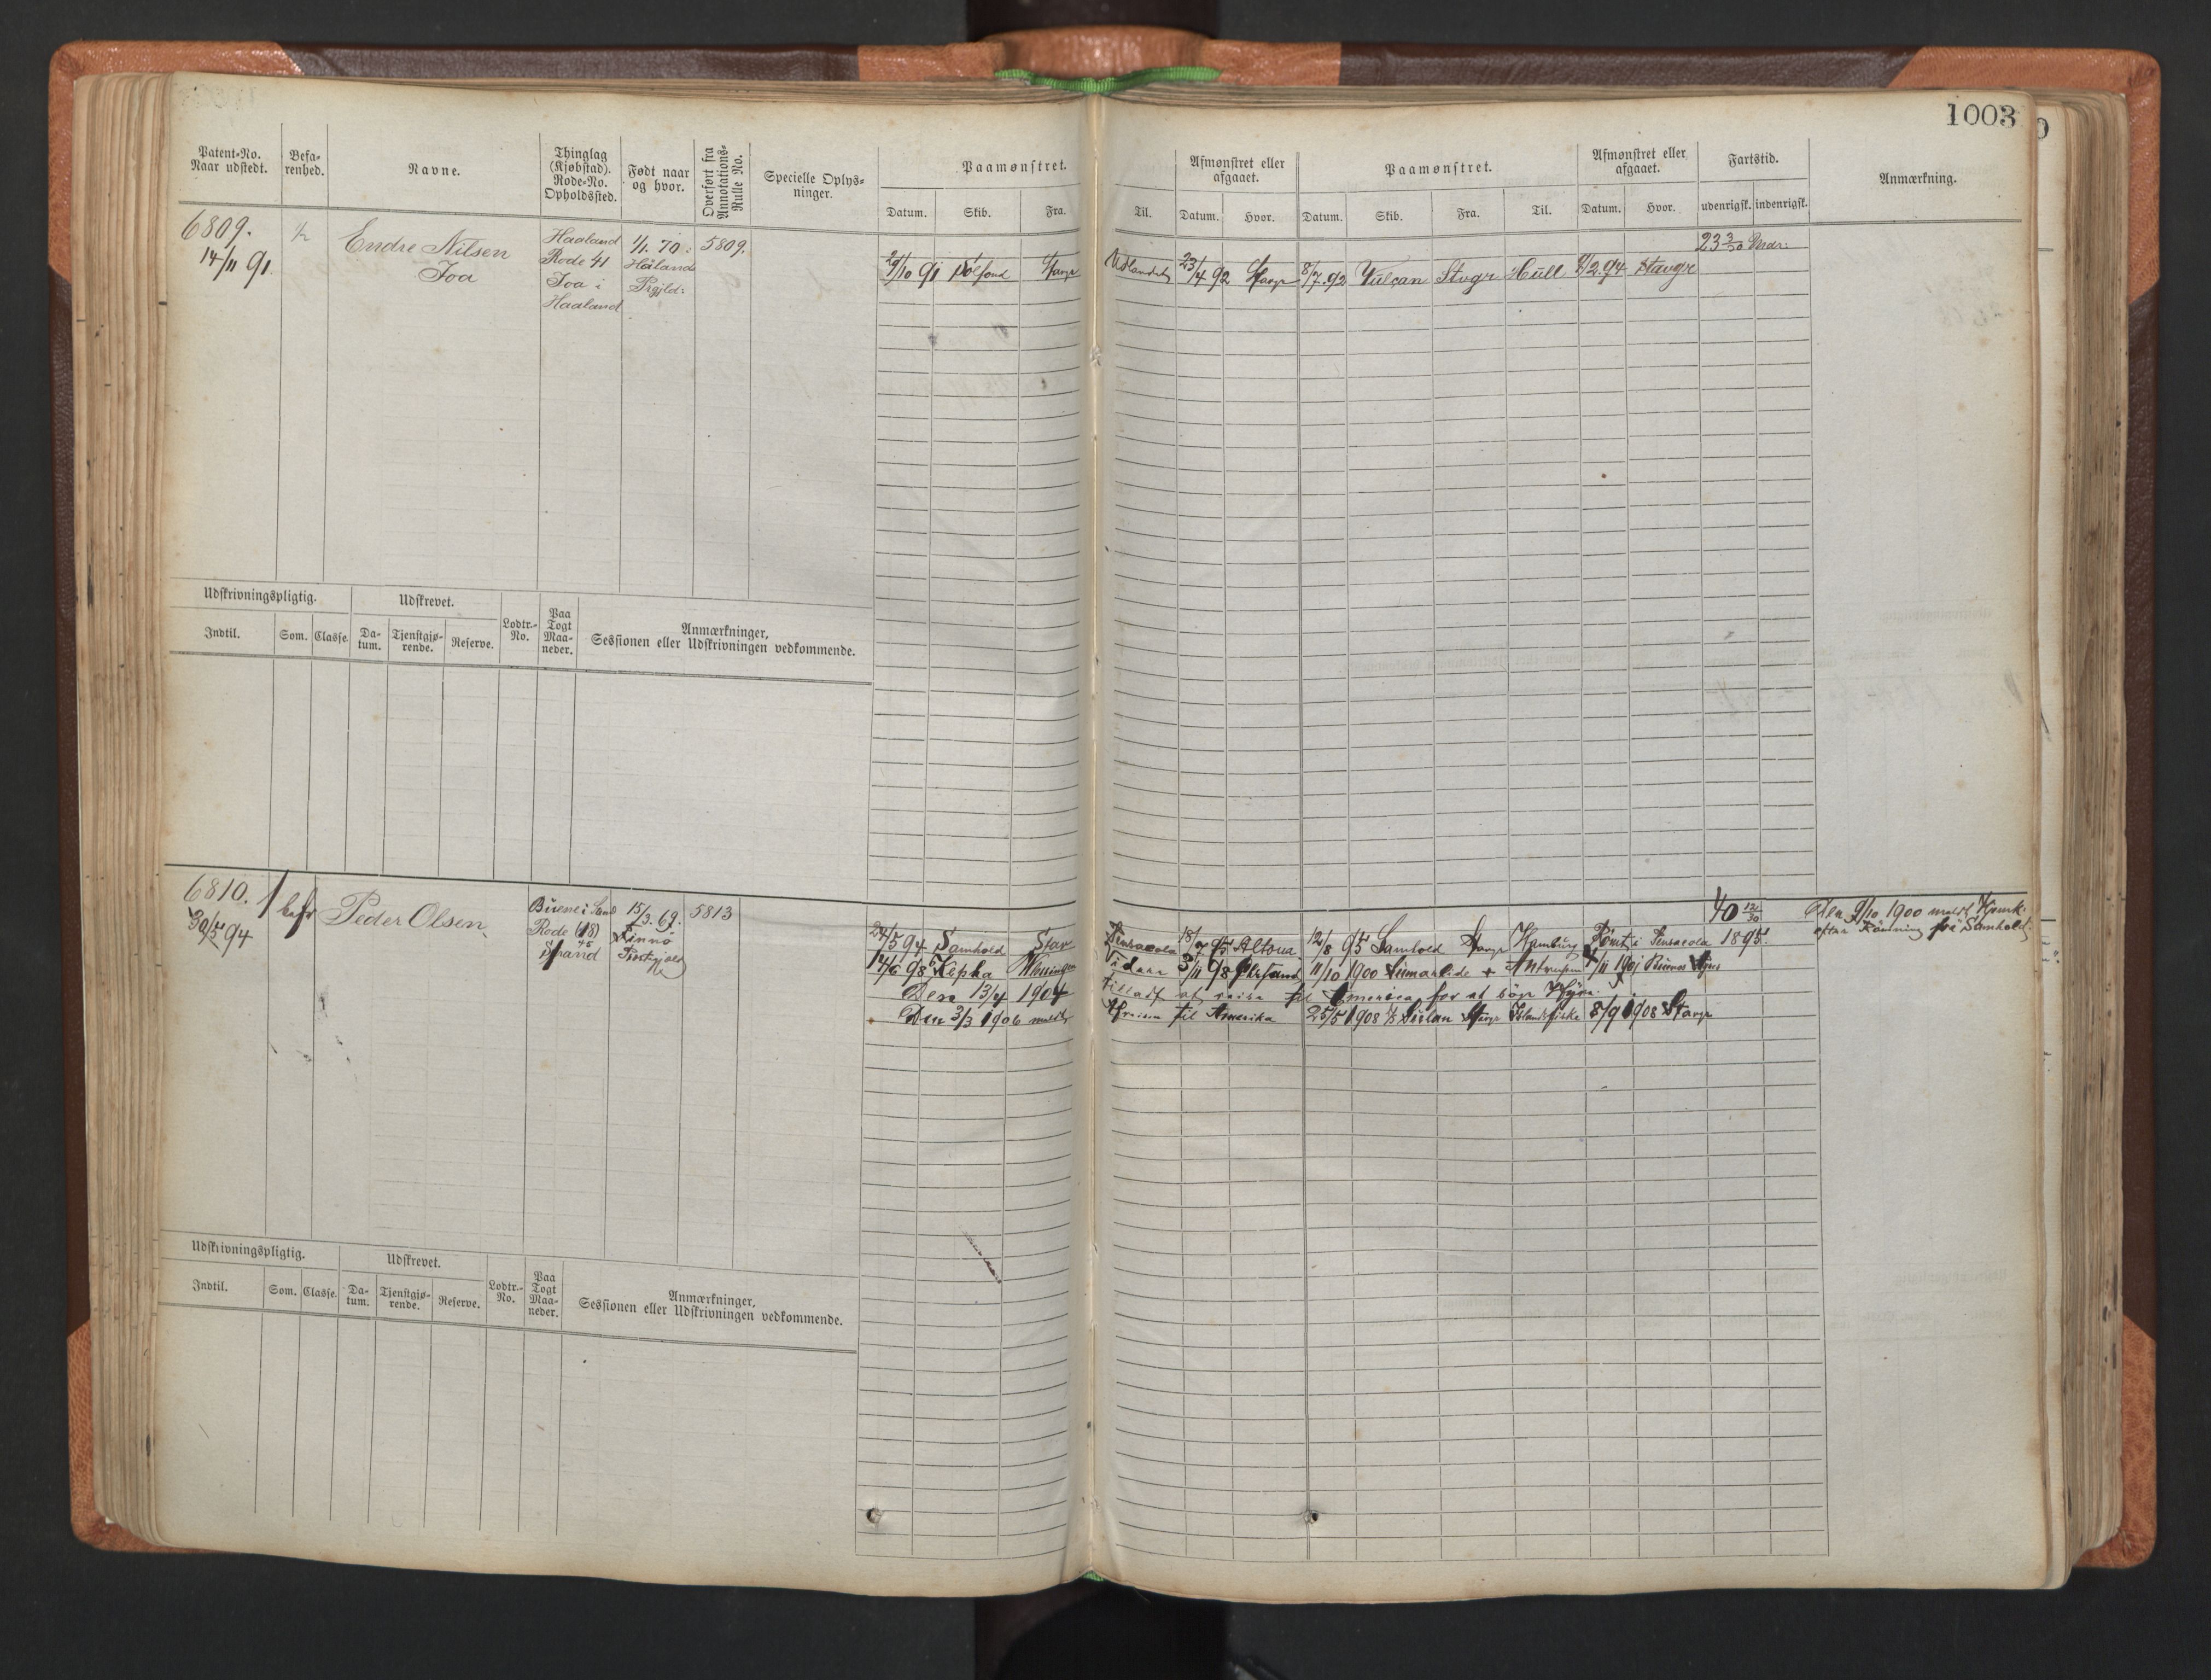 1003
Patent-No. Naar udstedt.
Befarenhed.
Navne.
Thinglag (Kjøbstad). Rode-No. Opholdssted.
Født naar og hvor.
Overført fra Annotations-Rulle No.
Specielle Oplysninger.
Paamønstret.
Datum. Skib. Fra. Til.
Afmønstret eller afgaaet.
Datum. Hvor.
Paamønstret.
Datum. Skib. Fra. Til.
Afmønstret eller afgaaet.
Datum. Hvor.
Fartstid.
udenrigsk. indenrigsk.
Anmærkning.
6809.
14/11 91
1/2
Endre Nilsen
Joa
Haaland
Rode 41
Joa i
Haaland
1/1. 70.
Håland
Prgjld:
5809.
23 3/30 Mdr.
29/10 91 Udlandet 23/4 92 Stavgr 8/7.92 Vulcan Stvgr Hull 2.94 Stavgr
Udskrivningspligtig.
Indtil. Som. Classe.
Udskrevet.
Datum. Tjenstgjørende. Reserve.
Lodtr.-No.
Paa Togt Maaneder.
Anmærkninger, Sessionen eller Udskrivningen vedkommende.
6810.
30/5 94
1 befr
Peder Olsen
Rode (18)
45
Strand
15/3. 69.
Finnö
Prestgjeld
5813
40 12/30
Den 9/10 1900 meldt Hjemk.
efter Rømning frå Samhold.
24/5 94 Samhold Stav Pensacola 18/7 95 Altona 12/8 95 Samhold Stavgr Hamburg Römt i Pensacola 1895.
14/6 98 Kepha Vlissingen 3/11 98 11/10 1900 Antwerpen /11 1901 Buenos Ajres
Den 13/4 1904 Tilladt at reise til Amerika for at söge Hyre.
Den 3/3 1906 meldt Afreisen til Amerika 25/5 1908 Stavgr Islandsfiske 8/9 1908 Stavgr
Udskrivningspligtig.
Indtil. Som. Classe.
Udskrevet.
Datum. Tjenstgjørende. Reserve.
Lodtr.-No.
Paa Togt Maaneder.
Anmærkninger, Sessionen eller Udskrivningen vedkommende.